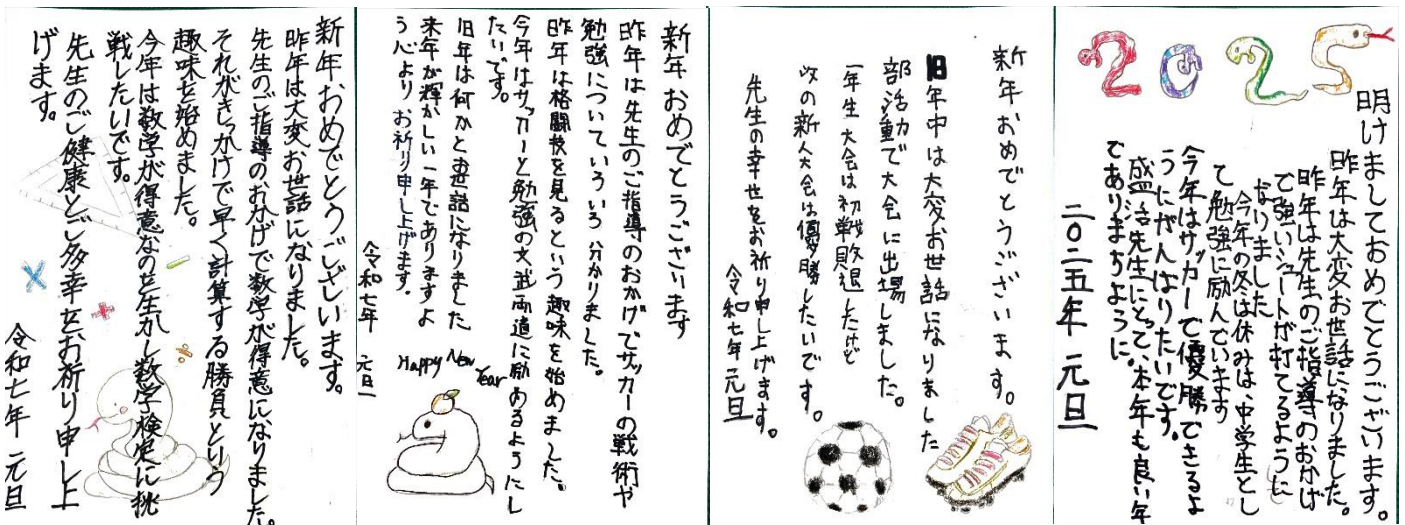 2025
明けましておめでとうございます。
昨年は大変お世話になりました。
昨年は先生のご指導のおかげ
で強いシュートが打てるように
なりました
今年の冬は休みは、中学生とし
て勉強に励んでいます
今年はサッカーで優勝できるよ
うにがんばりたいです。
先生にとって、本年も良い年
でありまちように。
二〇二五年 元旦
新年おめでとうございます。
旧年中は大変お世話になりました
部活動で大会に出場しました。
一年生大会は初戦敗退したけど
次の新人大会は優勝したいです。
先生の幸せをお祈り申し上げます。
令和七年元旦
新年おめでとうございます
昨年は先生のご指導のおかげでサッカーの戦術や
勉強についていろいろ分かりました。
昨年は格闘技を見るという趣味を始めました。
今年はサッカーと勉強の文武両道に励めるようにし
たいです。
旧年は何かとお世話になりました
来年が輝かしい一年でありますよ
う心よりお祈り申し上げます。
令和七年 元旦
Happy New Year
新年おめでとうございます。
昨年は大変お世話になりました。
先生のご指導のおかげで数学が得意になりました。
それがきっかけで早く計算する勝負という
趣味を始めました。
今年は数学が得意なのを生かし数学検定に挑
戦したいです。
先生のご健康とご多幸をお祈り申し上
げます。
令和七年 元旦